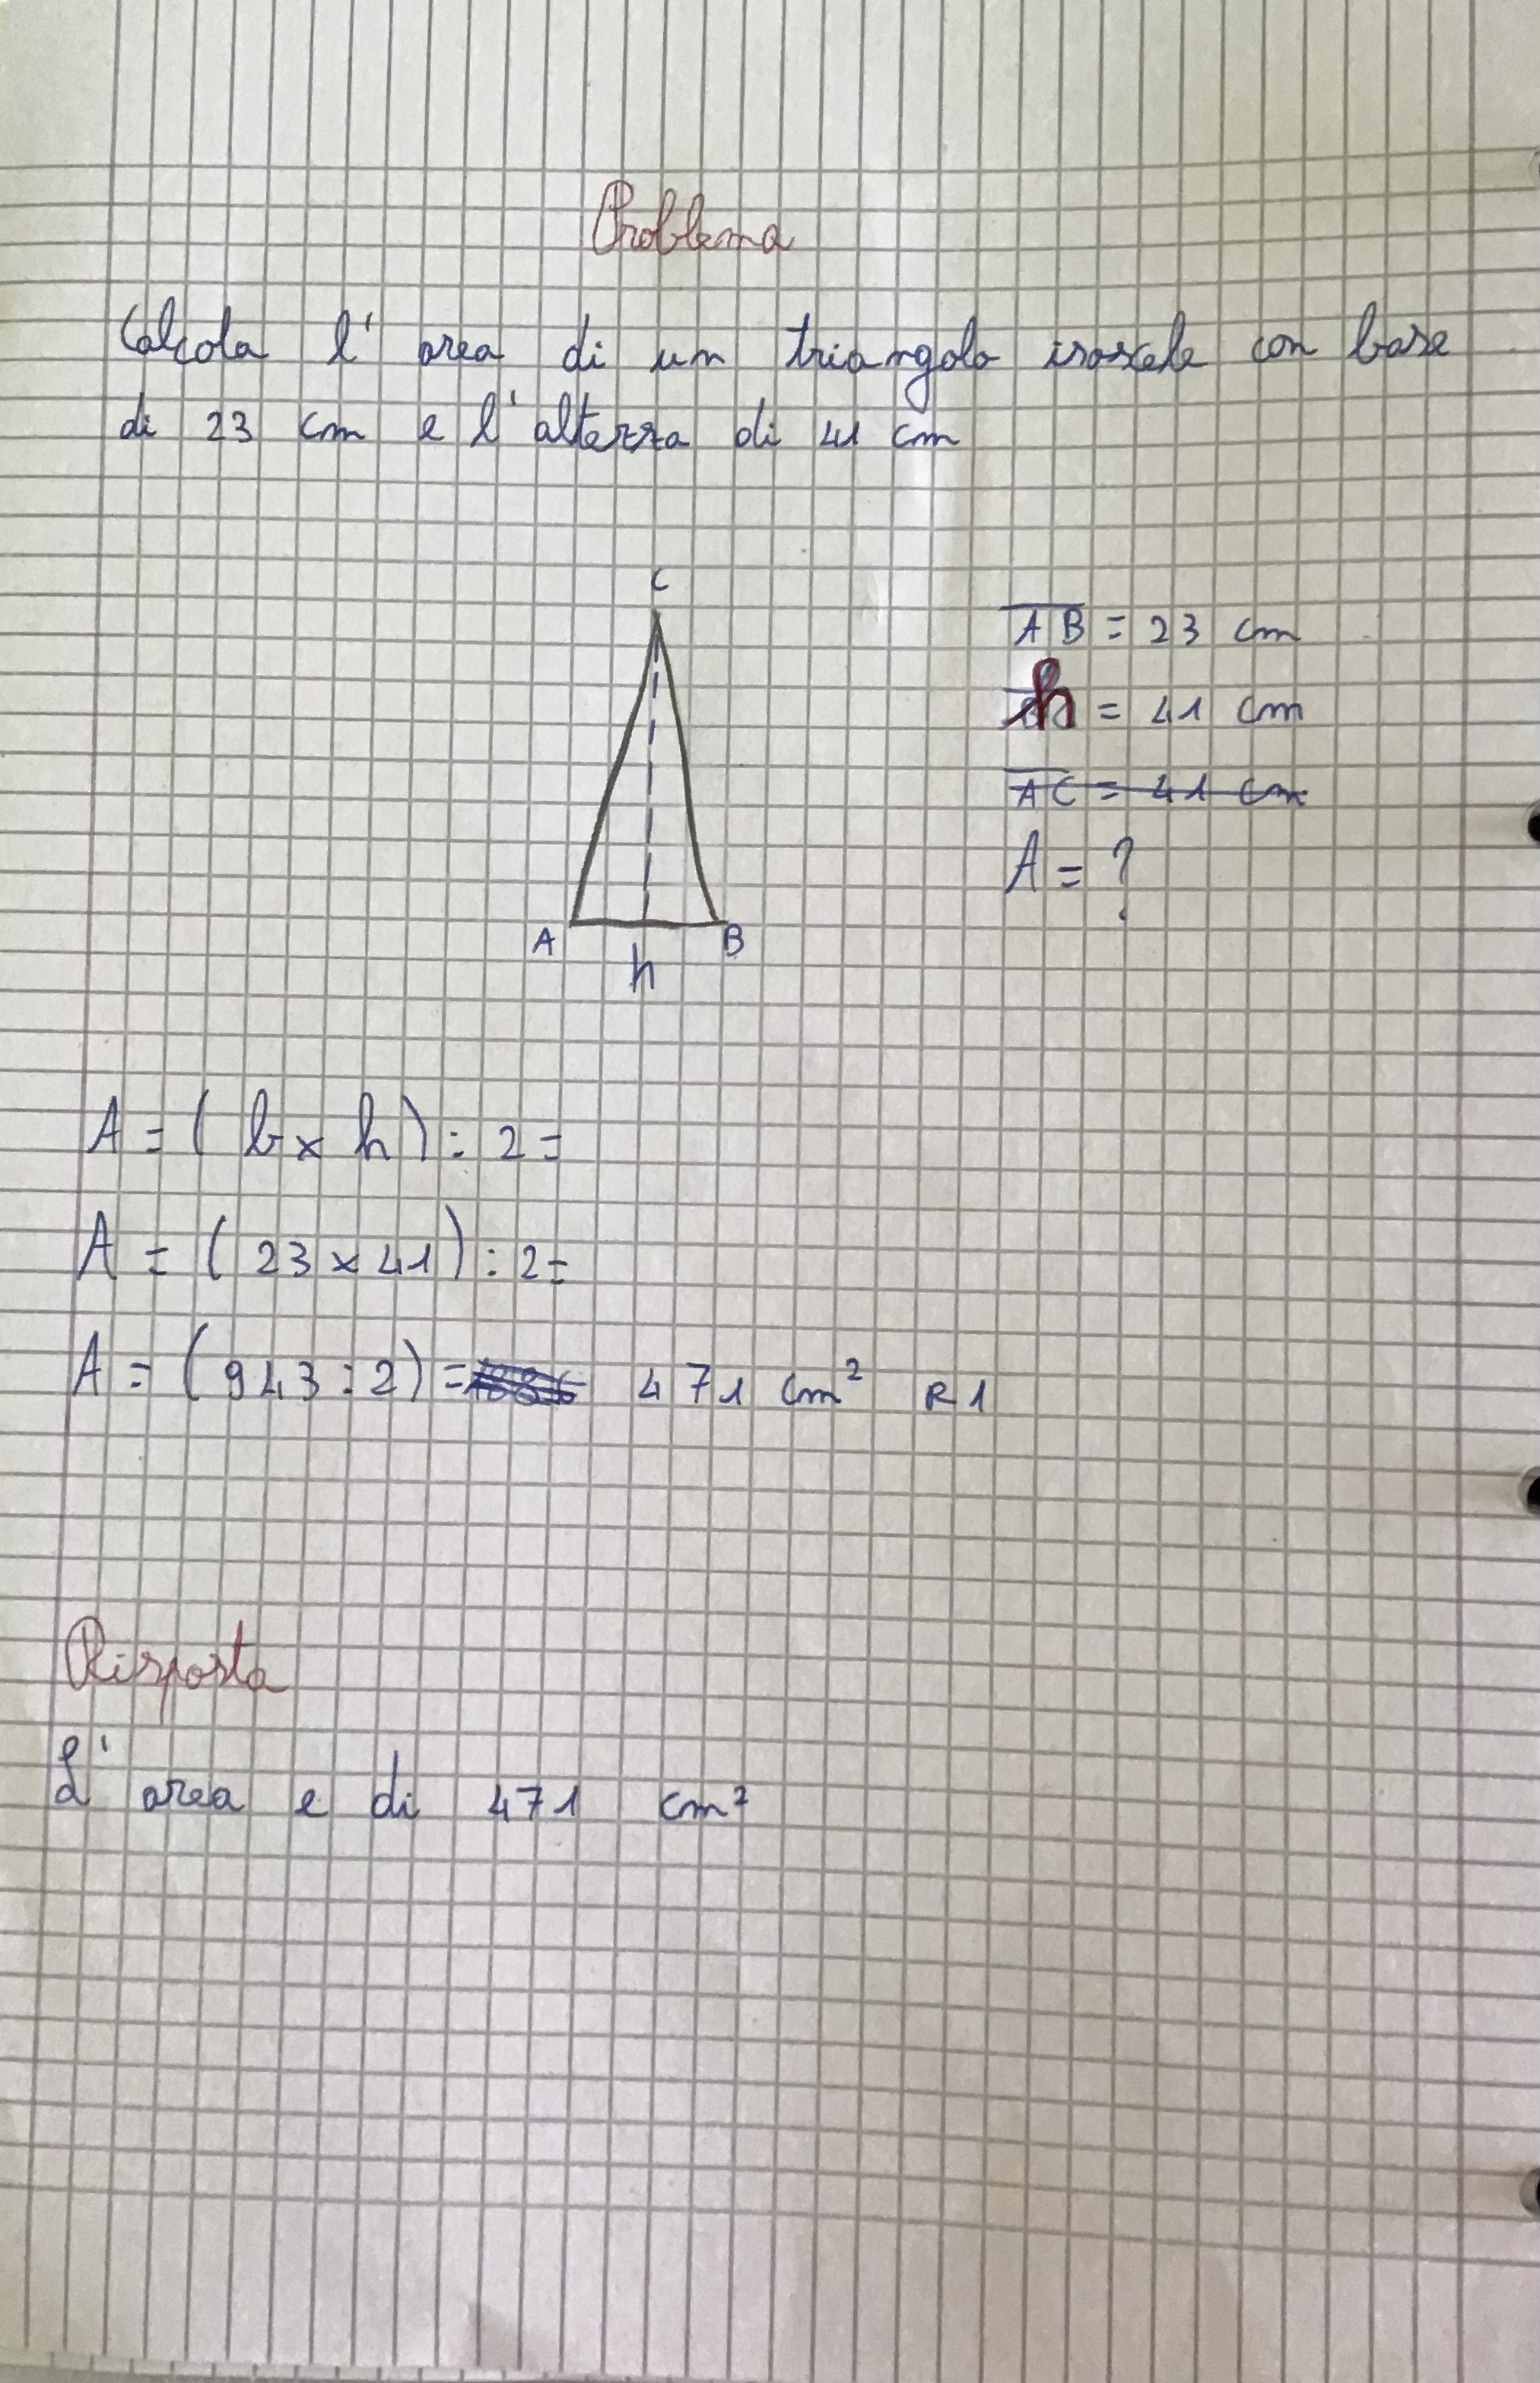 Problema
Calcola l'area di un triangolo isoscele con base
di 23 cm e l'altezza di 41 cm
C
A B
h
AB = 23 cm
h = 41 cm
AC = 41 cm
A = ?
A = ( b x h ) : 2 =
A = ( 23 x 41 ) : 2 =
A = ( 943 : 2 ) = 471 cm² R1
Risposta
L'area e di 471 cm²